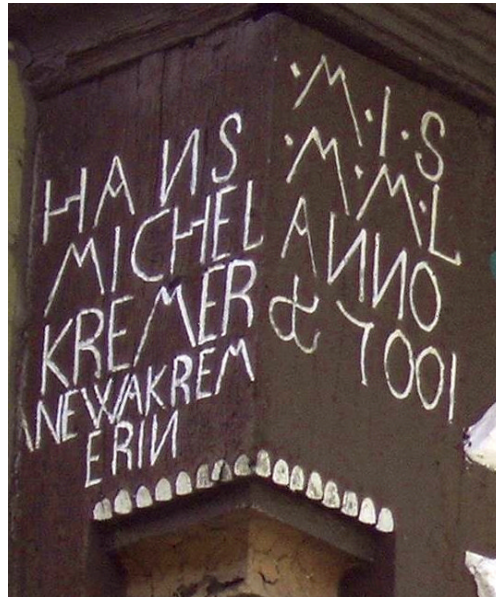 HANS
MICHEL
KREMER
NEWAKREM
ERIN
·M·I·S
·M·M·L
ANNO
& 7001